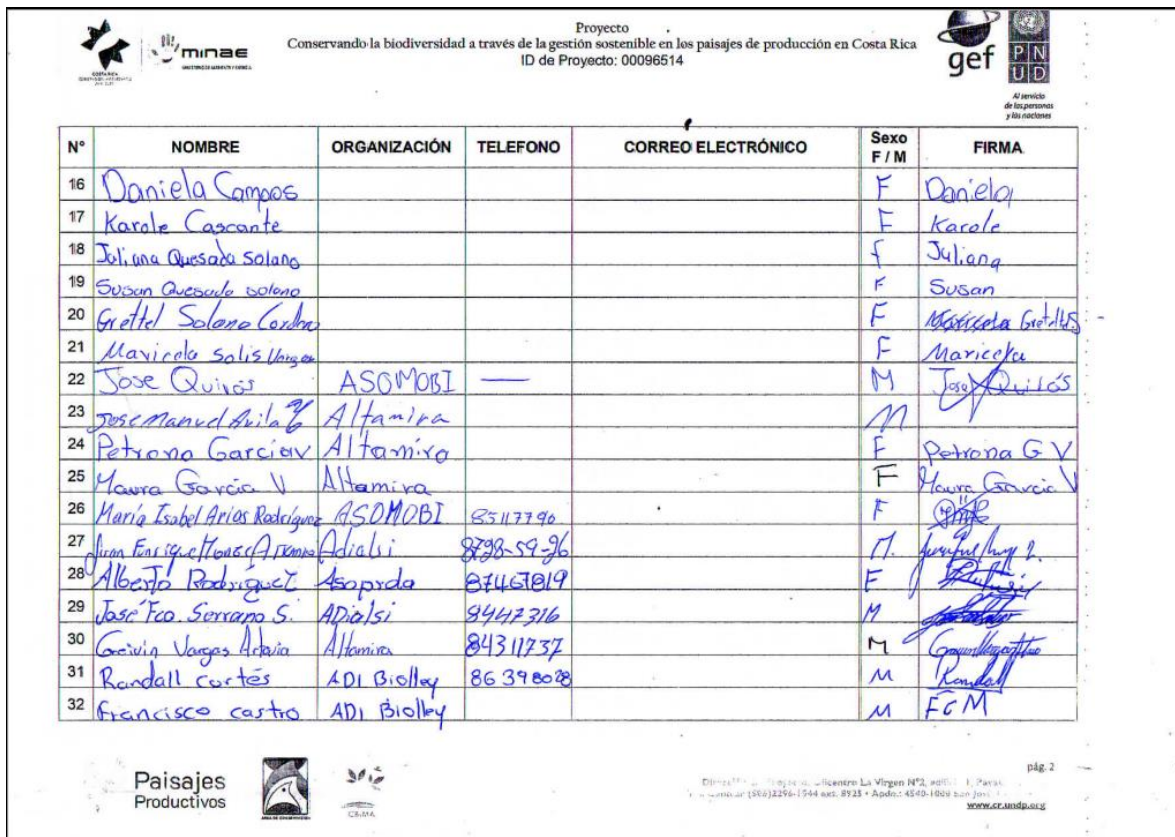 Proyecto
Conservando la biodiversidad a través de la gestión sostenible en los paisajes de producción en Costa Rica
ID de Proyecto: 00096514
minae
gef
P N
U D
Al servicio
de las personas
y las naciones
N° NOMBRE ORGANIZACIÓN TELEFONO CORREO ELECTRÓNICO Sexo F / M FIRMA
16 Daniela Campos F Daniela
17 Karole Cascante F Karole
18 Juliana Quesada Solano f Juliana
19 Susan Quesada solano F Susan
20 Grettel Solano F
21 Maricela Solis F Maricela
22 Jose Quirós ASOMOBI — M Jose Quirós
23 Jose Manuel Avila Altamira M
24 Petrona Garcia V Altamira F Petrona G V
25 Maura Garcia V Altamira F Maura Garcia V
26 María Isabel Arias Rodríguez ASOMOBI 85117790 F
27 Enrique Adialsi 8798-59-96 M.
28 Alberto Rodríguez Asoprola 87467819 F
29 José Fco. Serrano S. ADialsi 8447316 M
30 Greivin Vargas Artavia Altamira 84311737 M
31 Randall cortés ADI Biolley 86398028 M Randall
32 francisco castro ADI Biolley M FCM
Paisajes
Productivos
pág. 2
www.cr.undp.org